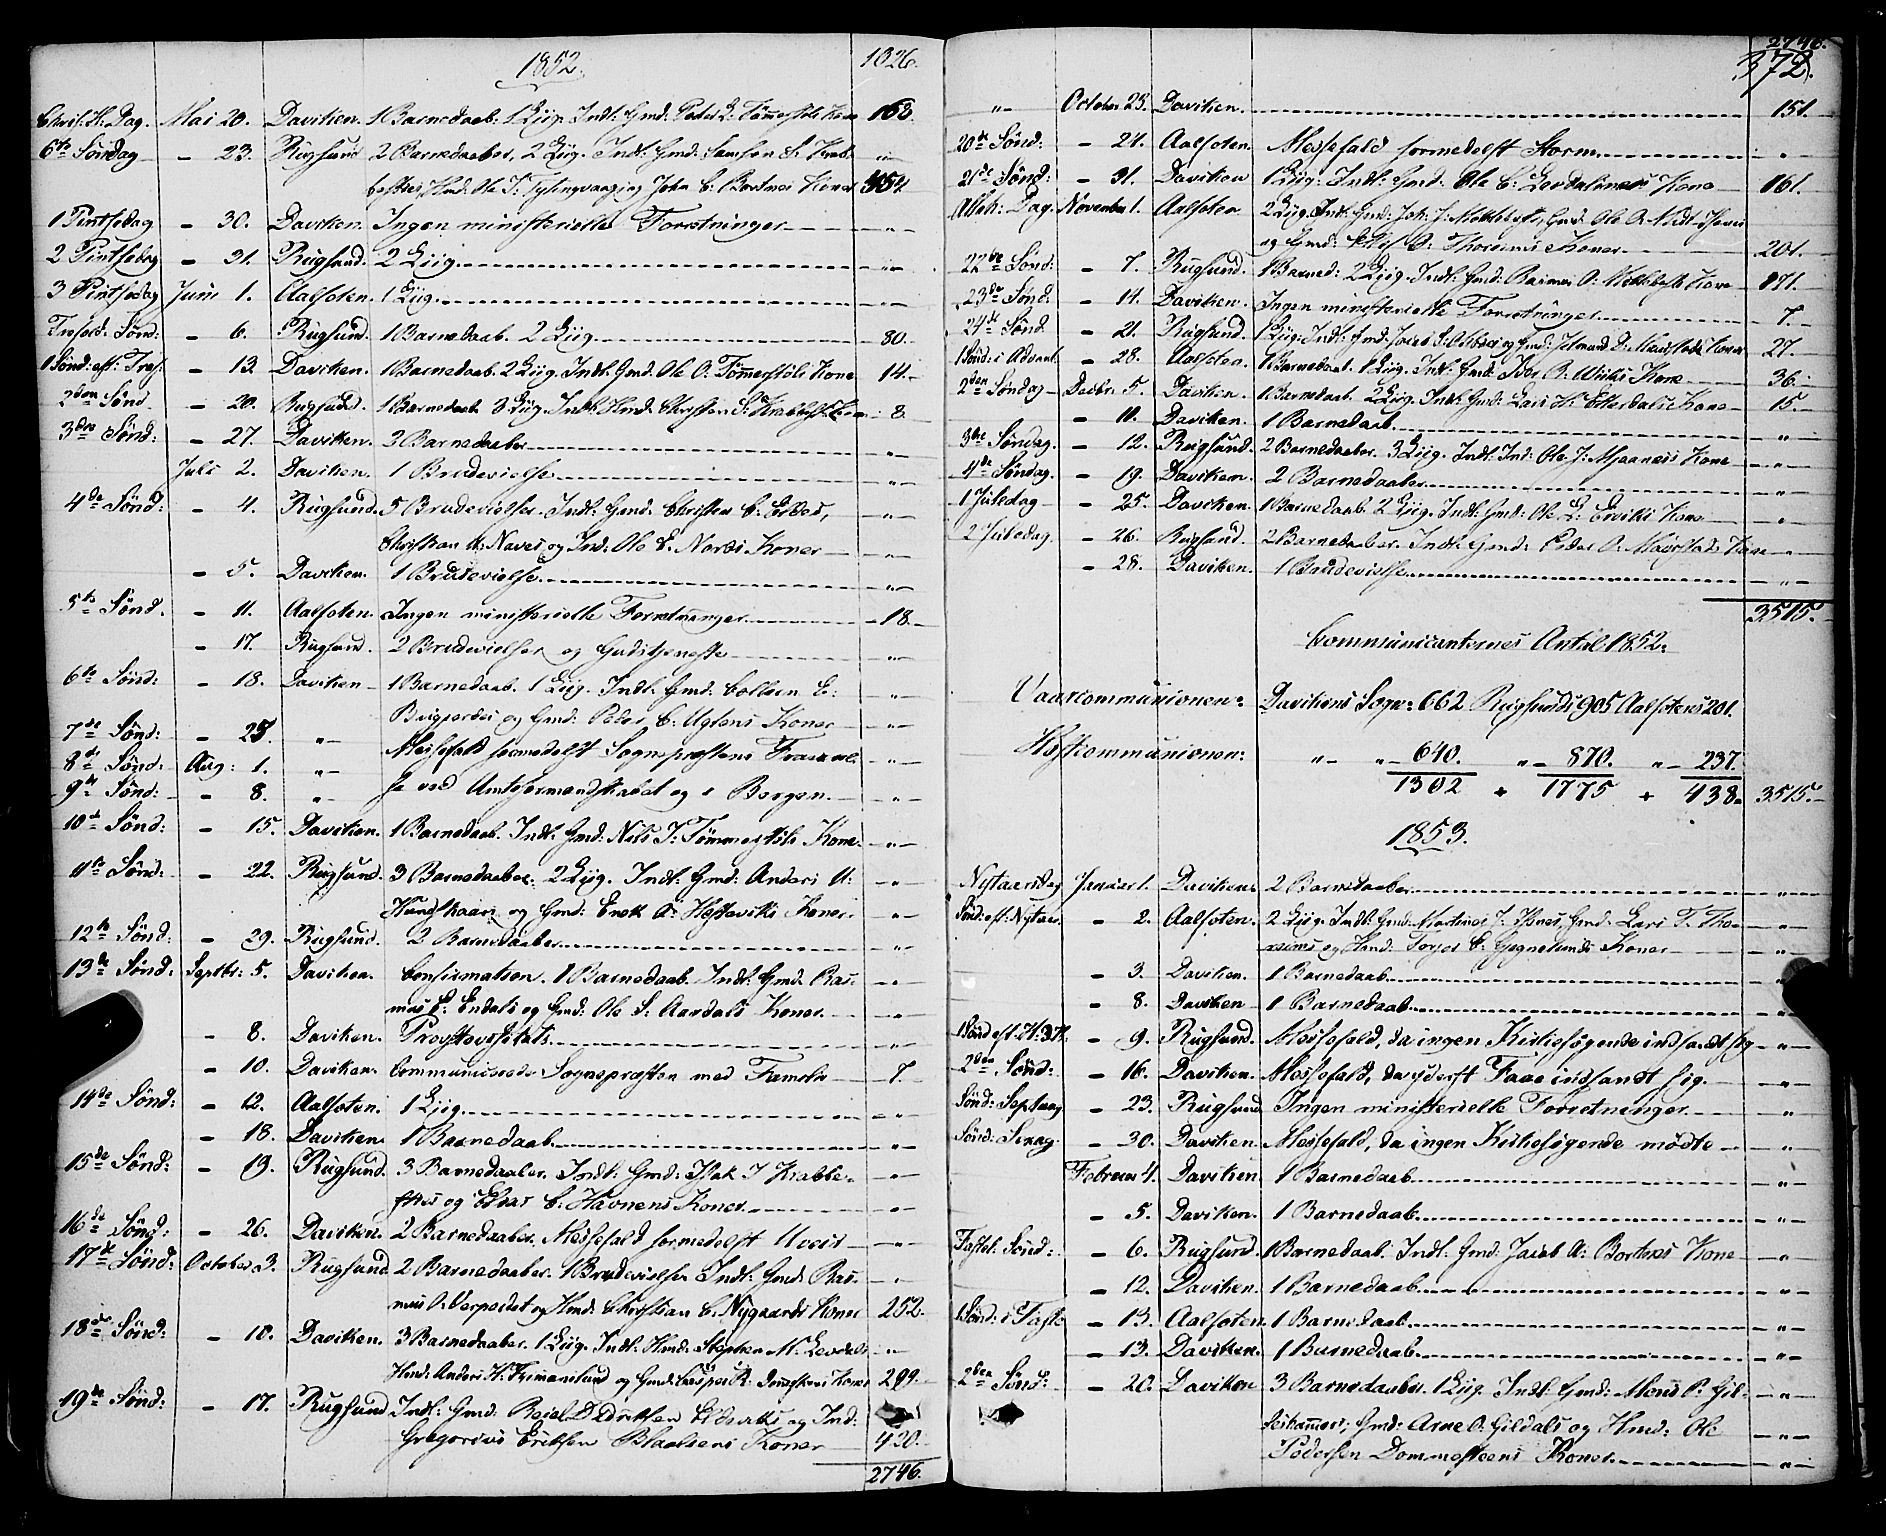 1852. 1026.
Christ. H: Dag. Mai 20. Daviken. 1 Barnedaab. 1 Liig. Indl: Gmd: Peder L: Tømmerstøls Kone 168.
6te Søndag – 23. Rugsund 2 Barnedaaber, 2 Liig. Indl: Gmd: Samson S. Krab-
bestes, Hmd. Ole J: og John C: Bortnes Koner 454
1 Pintsedag – 30. Daviken. Ingen ministerielle Forretninger – „ –
2 Pintsedag – 31. Rugsund. 2 Liig. – „ –
3 Pintsedag Juni 1. Aalfoten. 1 Liig. – „ –
Trefold. Sønd: – 6. Rugsund. 1 Barnedaab. 2 Liig. 80.
1 Sønd: eft: Tref: – 13. Daviken. 1 Barnedaab. 2 Liig. Indl: Gmd: Ole O: Tømmerstøls Kone 14.
2den Sønd – 20. Rugsund. 1 Barnedaab. 3 Liig. Indl: Hmd. Christen S: Kone 8.
3die Sønd: – 27. Daviken. 3 Barnedaaber – „ –
Juli 2. Daviken. 1 Brudevielse – „ –
4de Sønd: – 4. Rugsund. 5 Brudevielser. Indl: Gmd: Christen C: – „ –
Christian Naves og Ind: Ole E. Koner – „ –
– 5. Daviken. 1 Brudevielse – „ –
5te Sønd. – 11. Aalfoten. Ingen ministerielle Forretninger 18.
– 17. Rugsund. 2 Brudevielser og Gudstjeneste – „ –
6te Sønd: – 18. Daviken 1 Barnedaab. 1 Liig. Indl: Gmd: E: – „ –
og Gmd: Peder C: Koner – „ –
7de Sønd: – 25. „ Messefald formedelst Sognepræstens Fravæel- – „ –
8de Sønd: Aug: 1. „ – „ –
9de Sønd: – 8. „ se ved Amtsformandskabet og i Bergen. – „ –
10de Sønd: – 15. Daviken. 1 Barnedaab. Indl: Gmd: Nils J: Tømmerstøls Kone. – „ –
11te Sønd: – 22. Rugsund. 3 Barnedaaber. 2 Liig. Indl: Gmd: Anders A: – „ –
Hundskaars og Gmd: Enok A: Hesteviks Koner. – „ –
12te Sønd: – 29. Rugsund. 2 Barnedaaber – „ –
13de Sønd: Septbr: 5. Daviken. Confirmation. 1 Barnedaab. Indl: Gmd. Ras-
mus E: Endals og Gmd: Ole S. Aardals Koner. – „ –
– 8. Daviken. Provstevisitats – „ –
– 10. Daviken. Communicerede Sognepræsten med Familie 7.
14de Sønd: – 12. Aalfoten. 1 Liig – „ –
– 18. Daviken. 1 Barnedaab. – „ –
15de Sønd: – 19. Rugsund. 3 Barnedaaber. Indl: Gmd: Isak J Krabbe- – „ –
stes og C: Havnens Koner. – „ –
16de Sønd: – 26. Daviken. 2 Barnedaaber. Messefald formedelst Uveir – „ –
17de Sønd: October 3. Rugsund 2 Barnedaaber. 1 Brudevielse Indl: Gmd: Ras- – „ –
mus og Hmd: Christian C. Nygaards Koner 252.
18de Sønd: – 10. Daviken. 3 Barnedaaber. 1 Liig. Indl: Hmd: Stephen M: Levdals – „ –
Hmd: Anders H: og Gmd: Casper R. Koner 299.
19de Sønd: – 17. Rugsund Indl: Gmd: og Ind:
Gregorius Eriksen Koner 420.
2746.
2746.
372.
„ October 23. Daviken. 151.
20de Sønd: – 24. Aalfoten. Messefald formedelst Storm – „ –
21de Sønd: – 31. Daviken 1 Liig. Indl: Gmd: Ole C: Levdalsnes Kone 161.
Alleh: Dag. November 1. Aalfoten 2 Liig. Indl: Gmd: Gmd: Ole
og Gmd: Koner 201.
22de Sønd: – 7. Rugsund. 1 Barned: 2 Liig. Indl: Gmd: Rasmus Kone 171.
23de Sønd: – 14. Daviken. Ingen ministerielle Forretninger 7.
24de Sønd. – 21. Rugsund. 1 Liig. Indl: Gmd: og Gmd: Koner 27.
1 Sønd: i Advent. – 28. Aalfoten. 1 Barnedaab. 1 Liig. Indl: Gmd: Kone 36.
2den Søndag Decbr. 5. Daviken. 1 Barnedaab. 2 Liig. Indl: Gmd: Lars H: Kone 15.
– 10. Daviken. 1 Barnedaab „
3die Søndag. – 12. Rugsund. 2 Barnedaaber. 3 Liig. Indl: Ind: Ole J: Kone – „ –
4de Søndag. – 19. Daviken. 2 Barnedaaber – „ –
1 Juledag – 25. Daviken. 1 Barnedaab 2 Liig. Indl: Gmd: Ole L: Kone – „
2 Juledag. – 26. Rugsund. 2 Barnedaaber. Indl: Gmd: Peder O: Maurstad Kone – „
– 28. Daviken. 1 Brudevielse – „ –
3515.
Communicanternes Antal 1852.
Vaarcommunionen: Davikens Sogn: 662 Rugsunds 905 Aalfotens 201.
Høstcommunionen: „ „ 640. „ 870. „ 237.
1302 + 1775 + 438 = 3515.
1853.
Nytaarsdag Januar 1. Daviken. 2 Barnedaaber „
Sønd: eft. Nytaar. – 2. Aalfoten. 2 Liig. Indl: Gmd: Martinus J. Gmd: Lars T. – „ –
og Hmd: C. Gjegnelunds Koner – „ –
– 3. Daviken. 1 Barnedaab – „ –
– 8. Daviken 1 Barnedaab – „ –
1 Sønd eft. H: 3 K. – 9. Rugsund. Messefald, da ingen Kirkesøgende indfandt sig – „ –
2den Sønd: – 16. Daviken. Messefald, da yderst Faae indfandt sig. – „ –
Sønd: Septuag – 23. Rugsund Ingen ministerielle Forretninger „
Sønd: Sexag – 30. Daviken. Messefald, da ingen Kirkesøgende mødte – „ –
Februar 4. Daviken 1 Barnedaab – „ –
– 5. Daviken. 1 Barnedaab. – „ –
Fastel: Sønd: – 6. Rugsund. 1 Barnedaab. Indl: Gmd: Jacob A: Bortnes Kone – „ –
– 12. Daviken. 1 Barnedaab. – „ –
1 Sønd: i Faste – 13. Aalfoten. 1 Barnedaab. – „ –
– 13. Daviken. 1 Barnedaab. – „ –
2den Sønd: – 20. Daviken 3 Barnedaaber. 1 Liig. Indl: Gmd: Mons P: Gil- – „ –
Gmd: Arne O. Gildals og Hmd: Ole – „ –
Pedersen Dommesteens Koner. „